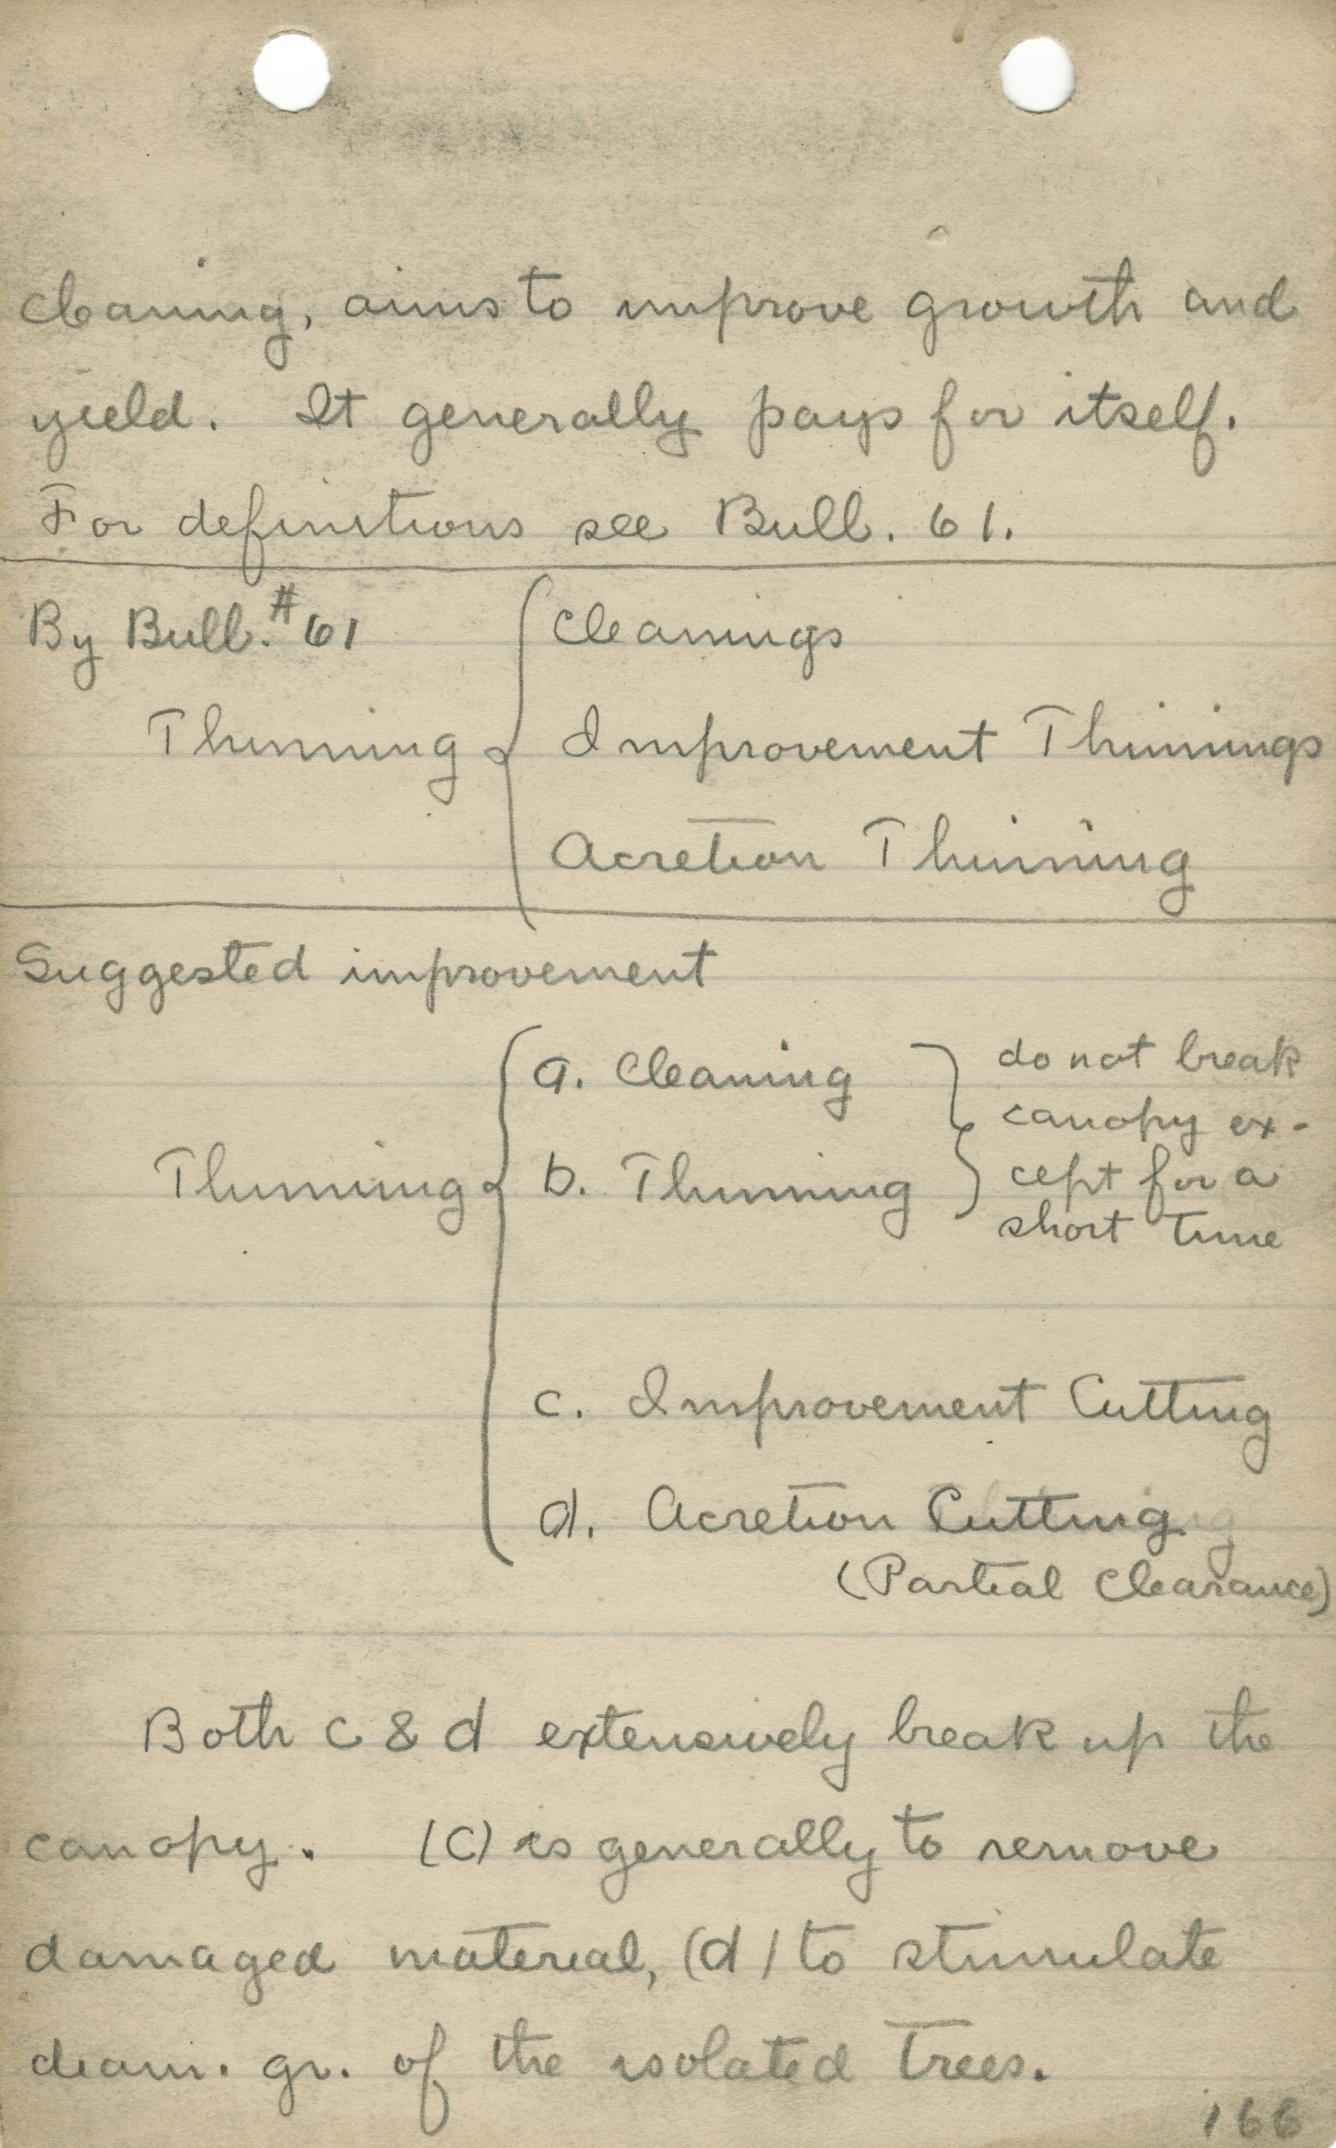 cleaning, aims to improve growth and
yield. It generally pays for itself.
For definitions see Bull. 61.
By Bull. #61
Cleanings
Thinning
Improvement Thinnings
Acretion Thinning
Suggested improvement
Thinning
a. Cleaning
b. Thinning
do not break
canopy ex-
cept for a
short time
c. Improvement Cutting
d. Acretion Cutting
(Partial Clearance)
Both c & d extensively break up the
canopy. (C) is generally to remove
damaged material, (d) to stimulate
diam. gr. of the isolated trees.
166